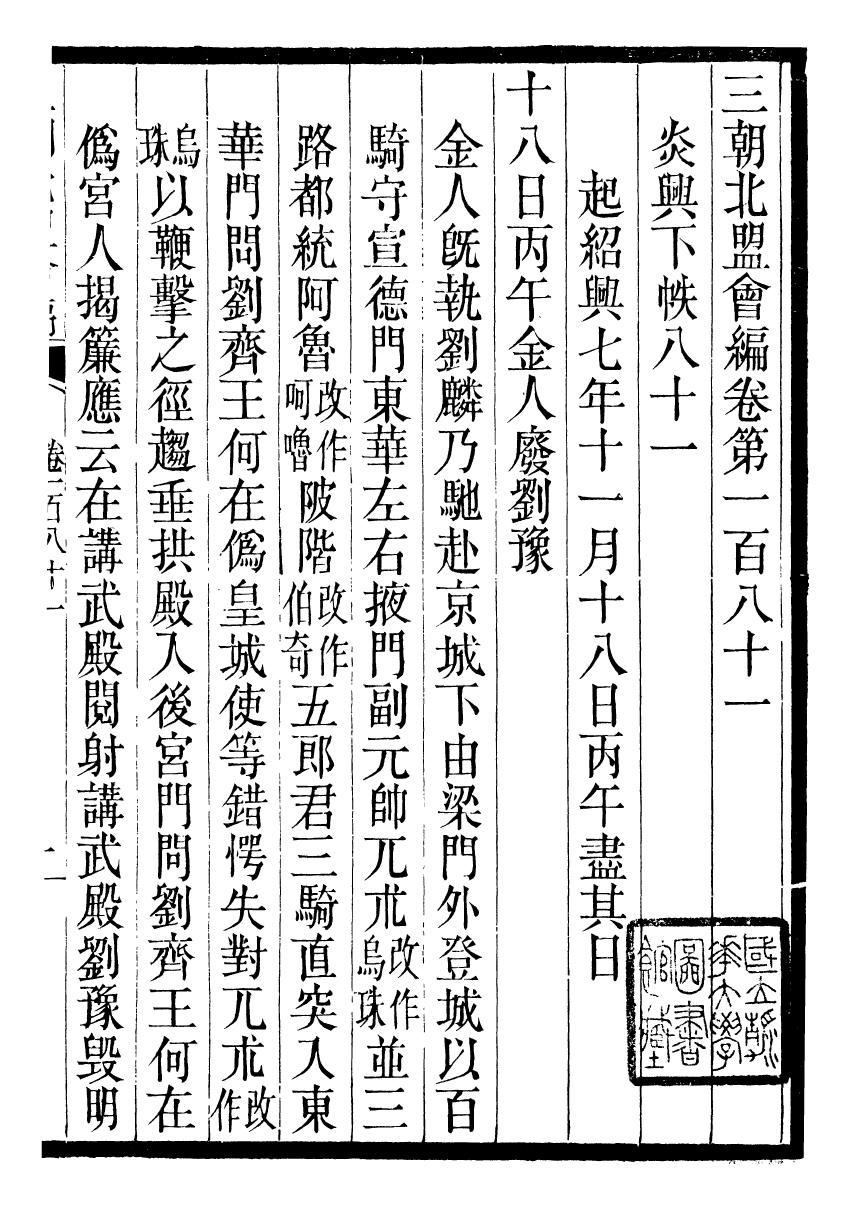 三朝北盟會編卷第一百八十一
炎興下帙八十一
起紹興七年十一月十八日丙午盡其日
十八日丙午金人廢劉豫
金人旣執劉麟乃馳赴京城下由梁門外登城以百
騎守宣德門東華左右掖門副元帥兀朮改作烏珠並三
路都統阿魯改作呵嚕陂階改作伯奇五郎君三騎直突入東
華門問劉齊王何在僞皇城使等錯愕失對兀朮改作
烏珠以鞭擊之徑趨垂拱殿入後宮門問劉齊王何在
僞宮人揭簾應云在講武殿閱射講武殿劉豫毁明
卷一百八十一
國立清華大學圖書館藏